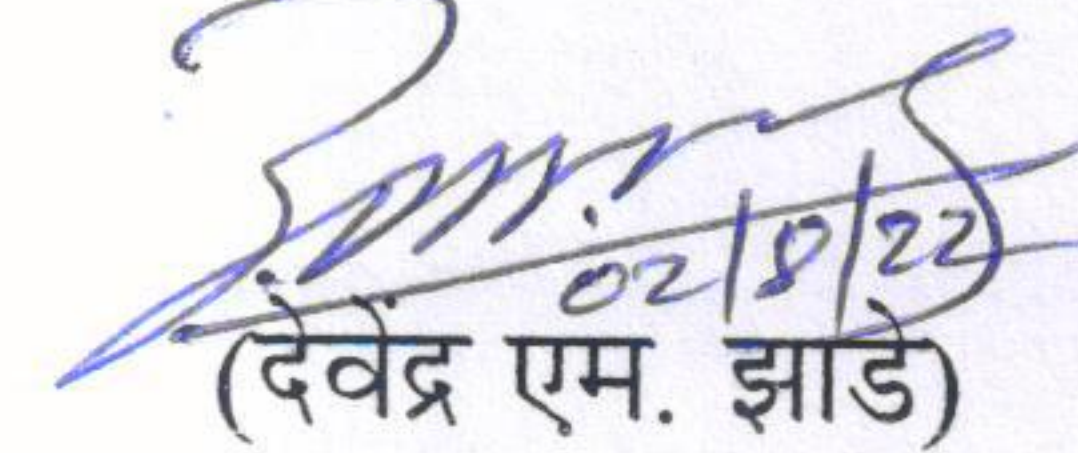 02/8/22
(देवेंद्र एम. झाडे)